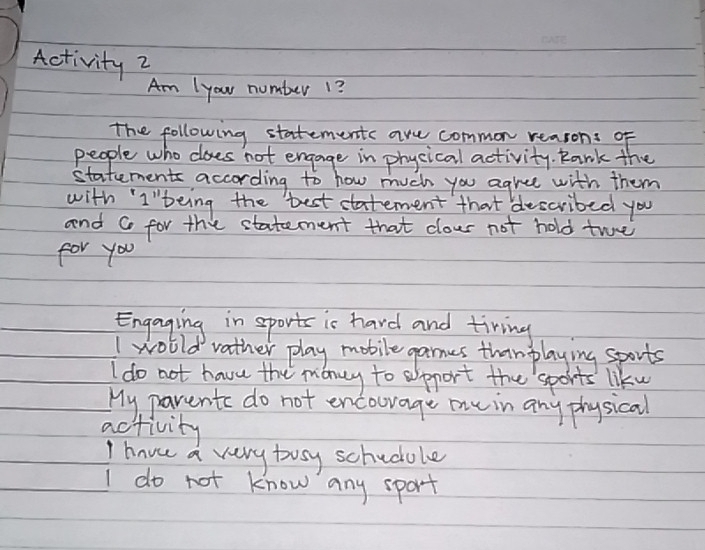 Activity 2
Am I your number 1?
The following statements are common reasons of
people who does not engage in physical activity. Rank the
statements according to how much you agree with them
with "1" being the "best statement that described you
and 6 for the statement that does not hold true
for you
Engaging in sports is hard and tiring
I would rather play mobile games than playing sports
I do not have the money to support the sports like
My parents do not encourage me in any physical
activity
I have a very busy schedule
I do not know any sport